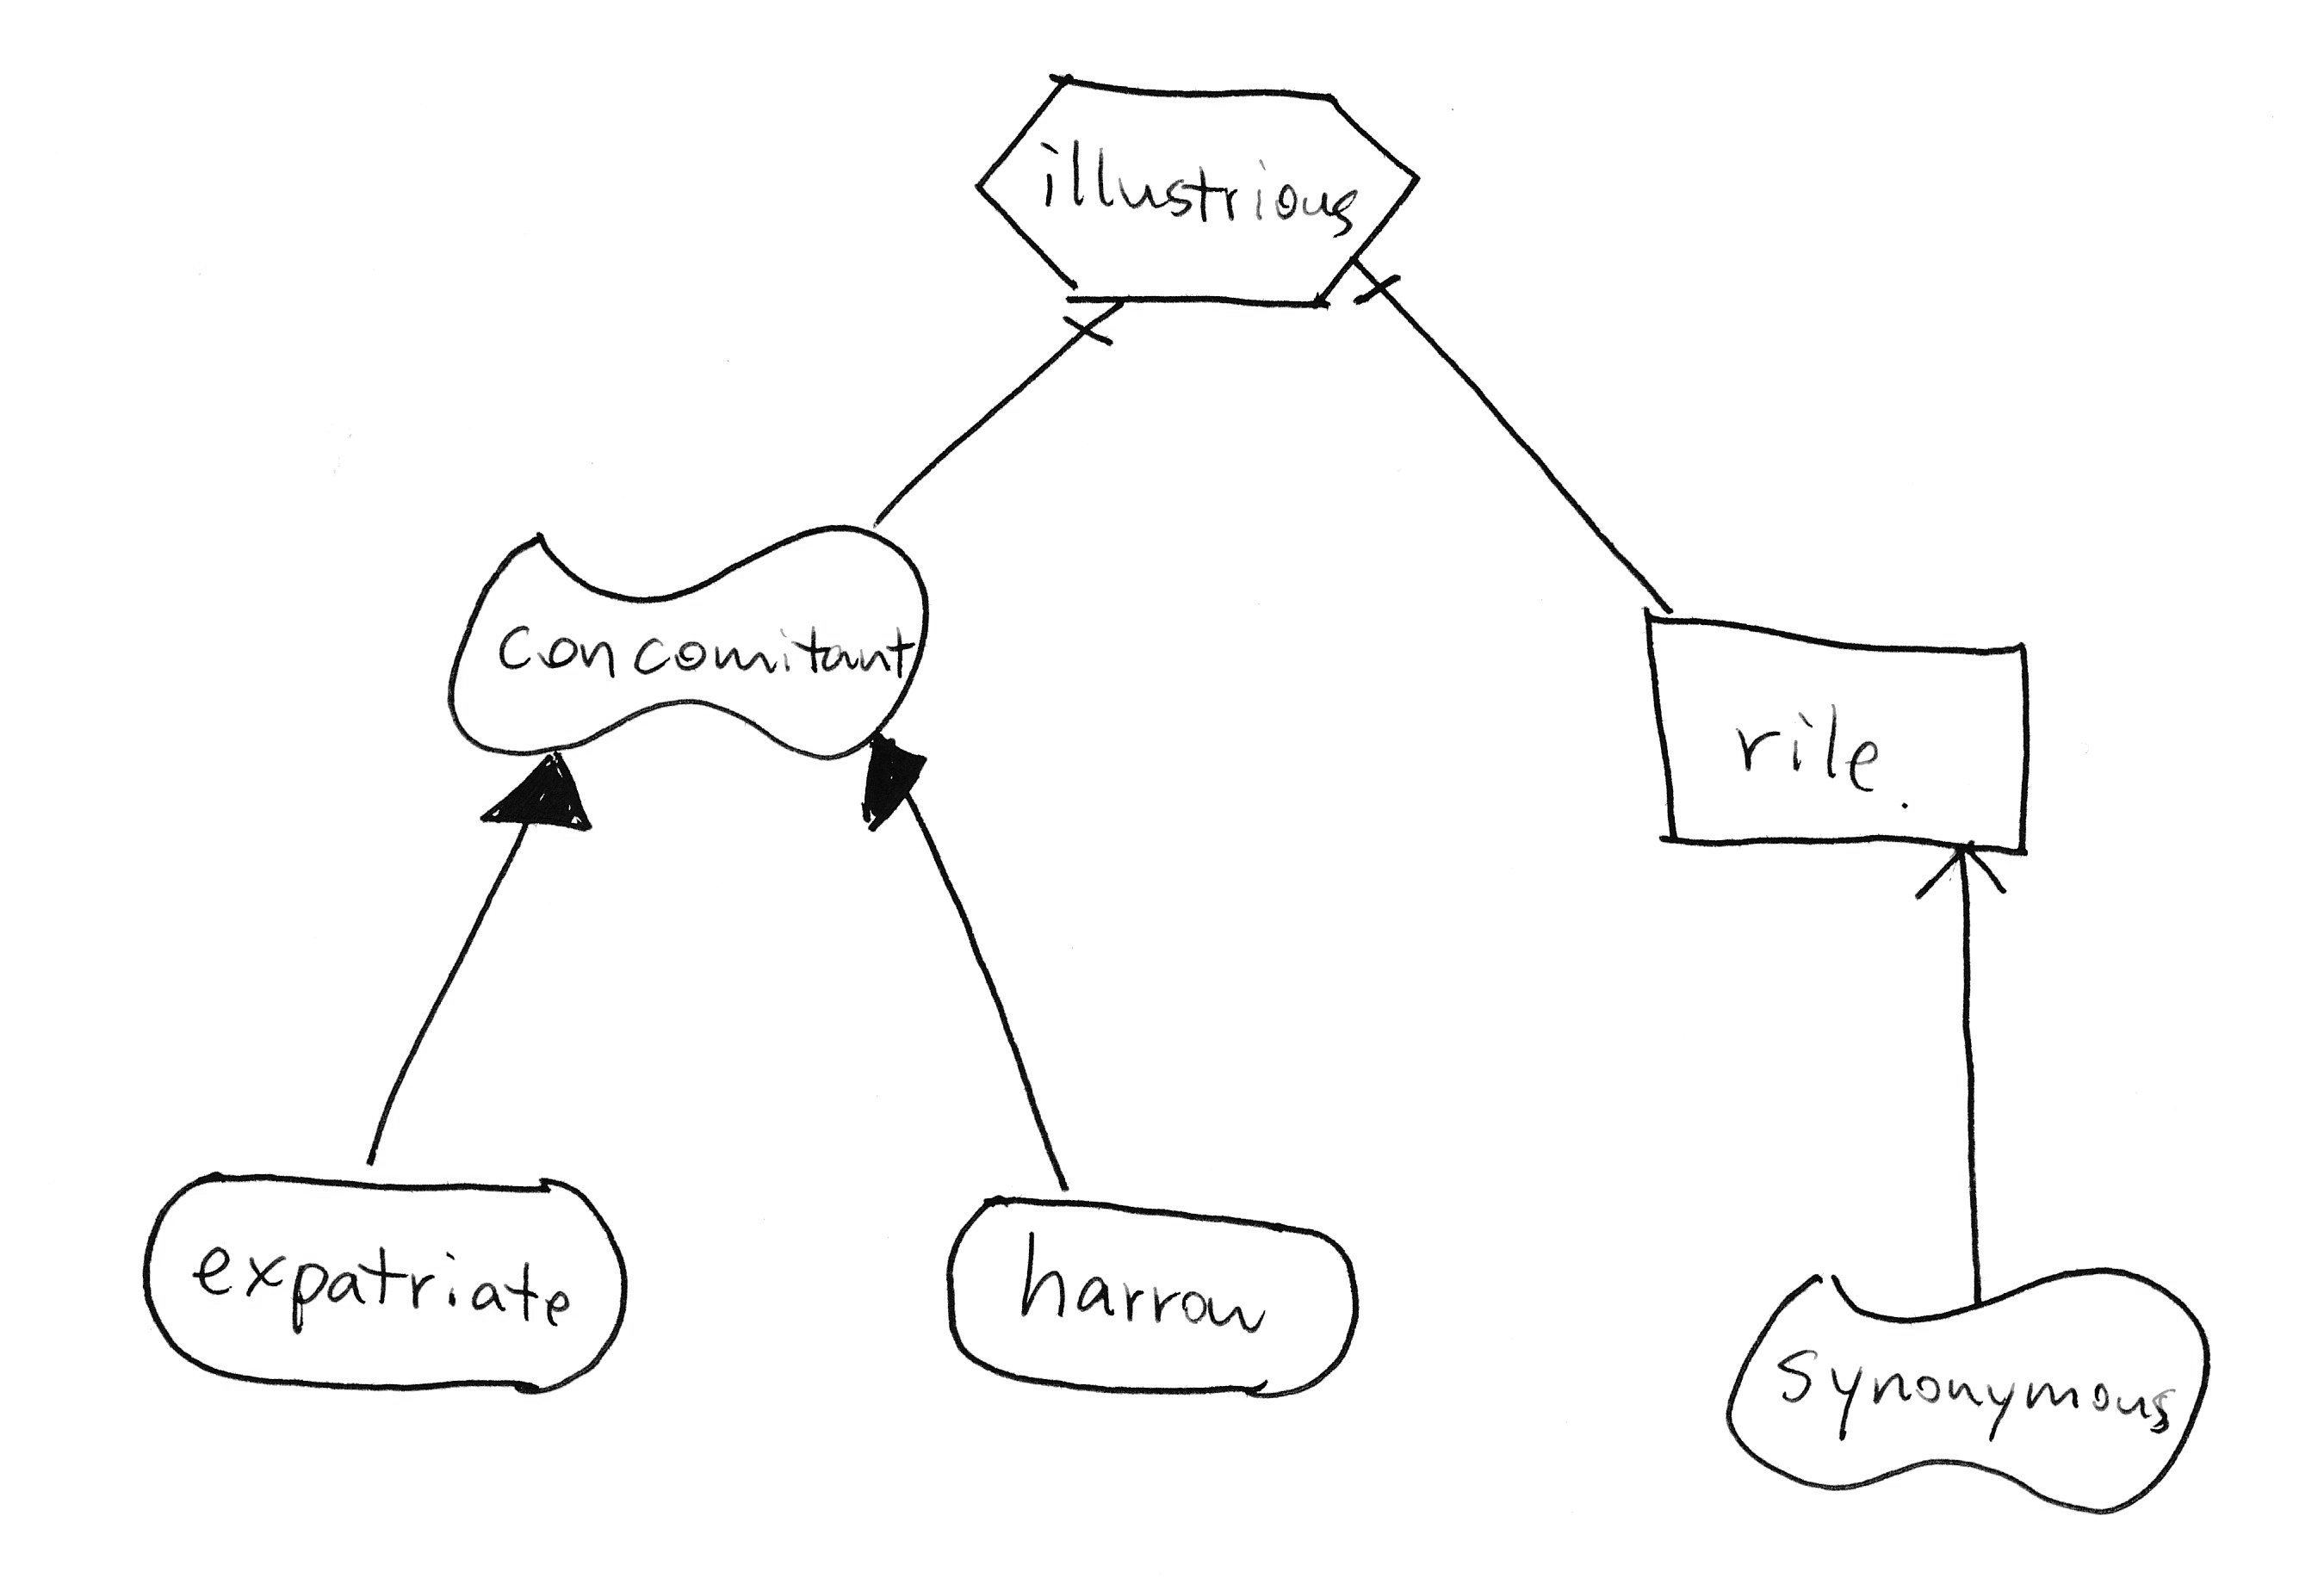 illustrious
concomitant
rile.
expatriate
harrow
synonymous